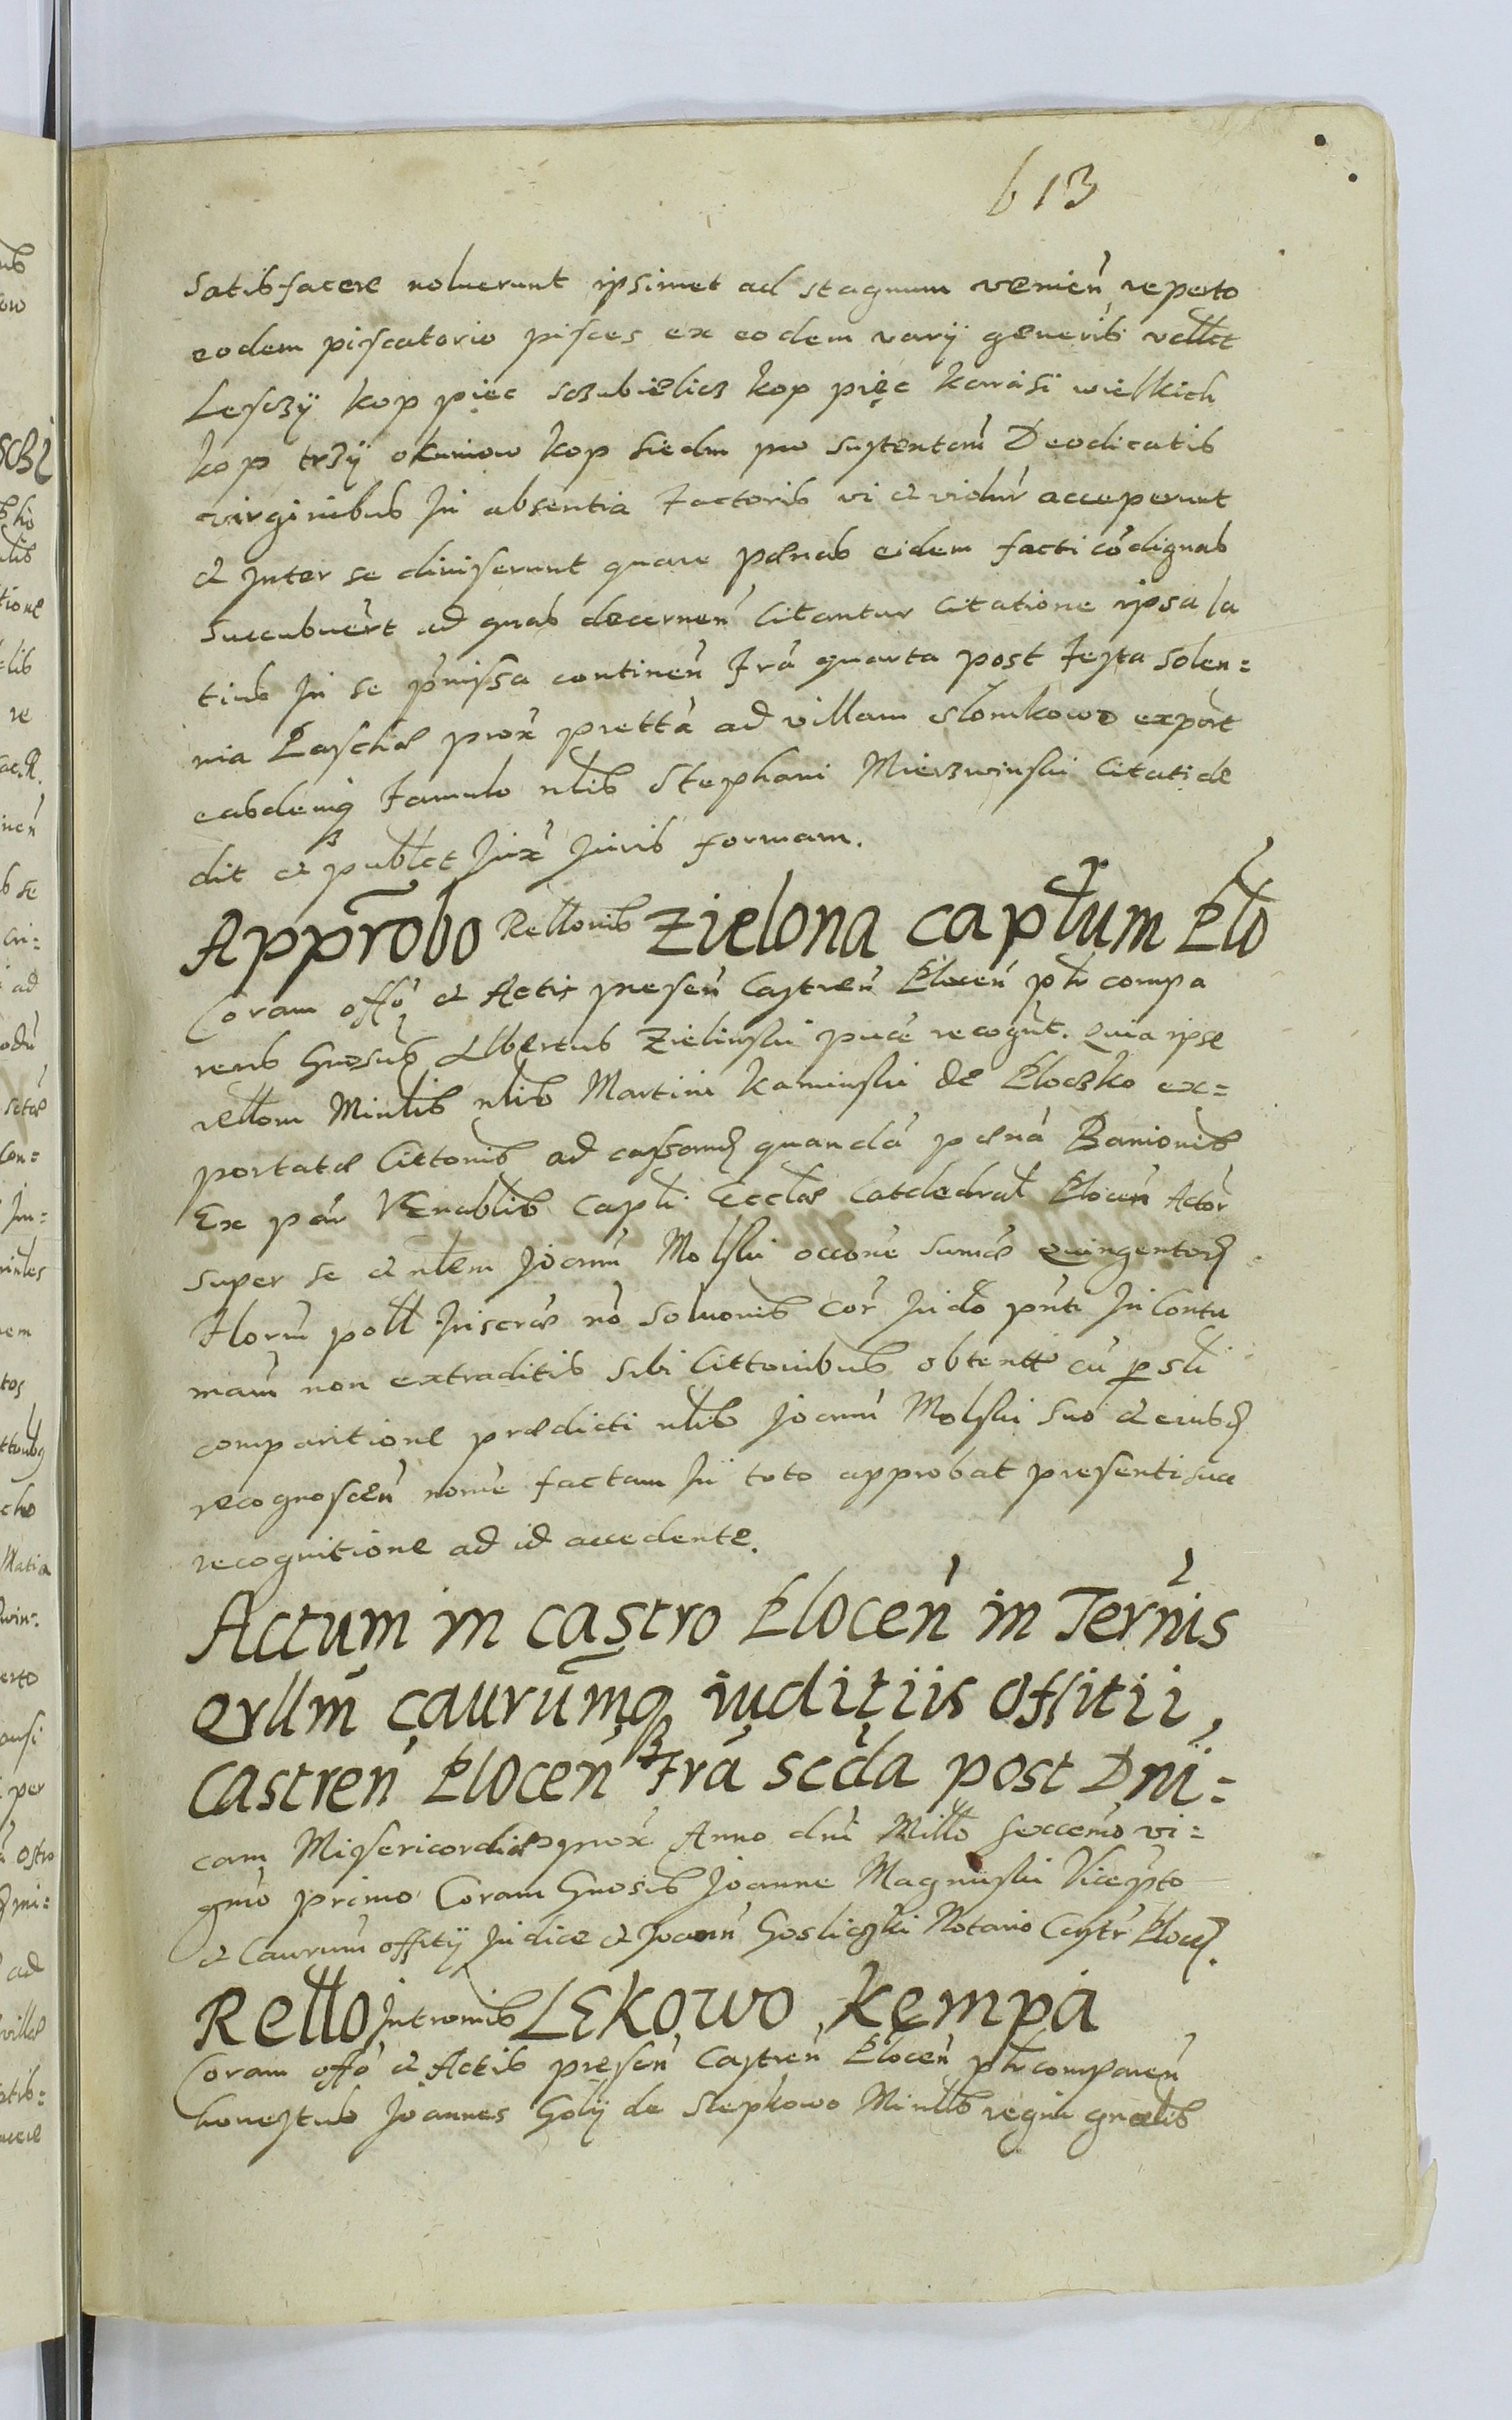 613
satisfacere noluerunt ipsimet ad stagnum venień reperto
eodem piscatorio pisces ex eodem varij generis vdltt
Lesczÿ kop pięc sczubielicz kop pięc karasi wielkich
kop trzÿ okuniow kop siedm pro sustentoni Deodicatis
virginibus In absentia Factoris vi et violnr acceperunt
et Inter se diviserunt quare pænas eidem facti codignas
succubuert ad quas decernen Citantur Citatione ipsa la
tius In se pmissa continen Fra quarta post Festa solen=
nia Paschæ prox pretta ad villam slomkowo export
easdemq Famulo nlis Stephani Mierzwinski Citati de
dit et publct Jux Juris formam.
Approbo Rellonis Zielona captlum Plo
Coram offo et Actis presen Castren Plocen plr compa
rens Gnosus Albertus Zielinski puce recognt. Quia ipse
rellom Minlis nlis Martini Kaminski de Ploczko ex=
portatæ Cittonis ad cassand quanda pæna Banionis
Ex par VEnablis Capli Ecclæ Catedrat Plocen Actor
super se et nlem Joann Molski occone sumæ Quingentor
Floru poll Inscræ no soluonis Cor Judo pnti In Contu
maum non extraditis sibi Cittonibus obtentt cu psli
comparitione prædicti nlis Joann Molski suo et eiusd
recognoscen nomie factam In toto approbat presenti sua
recognitione ad id accedente.
Actum in castro Plocen in Ternis
Qrllm caurumq iuditiis offitii
Castren Plocen Fra scda post Dni=
cam Misericordiæ prox Anno dni Millo sexcemo vi=
gmo primo Coram Gnosis Joanne Magnuski Vicepto
et Caurum offitij Judice et Joann Gosliczki Notario Castr Ploced.
Rello Intromis LEkowo Kempa
Coram offo et Actis presen Castren Plocen plr comparen
honestus Joannes Golÿ de Slepkowo Minlis regni gnælis